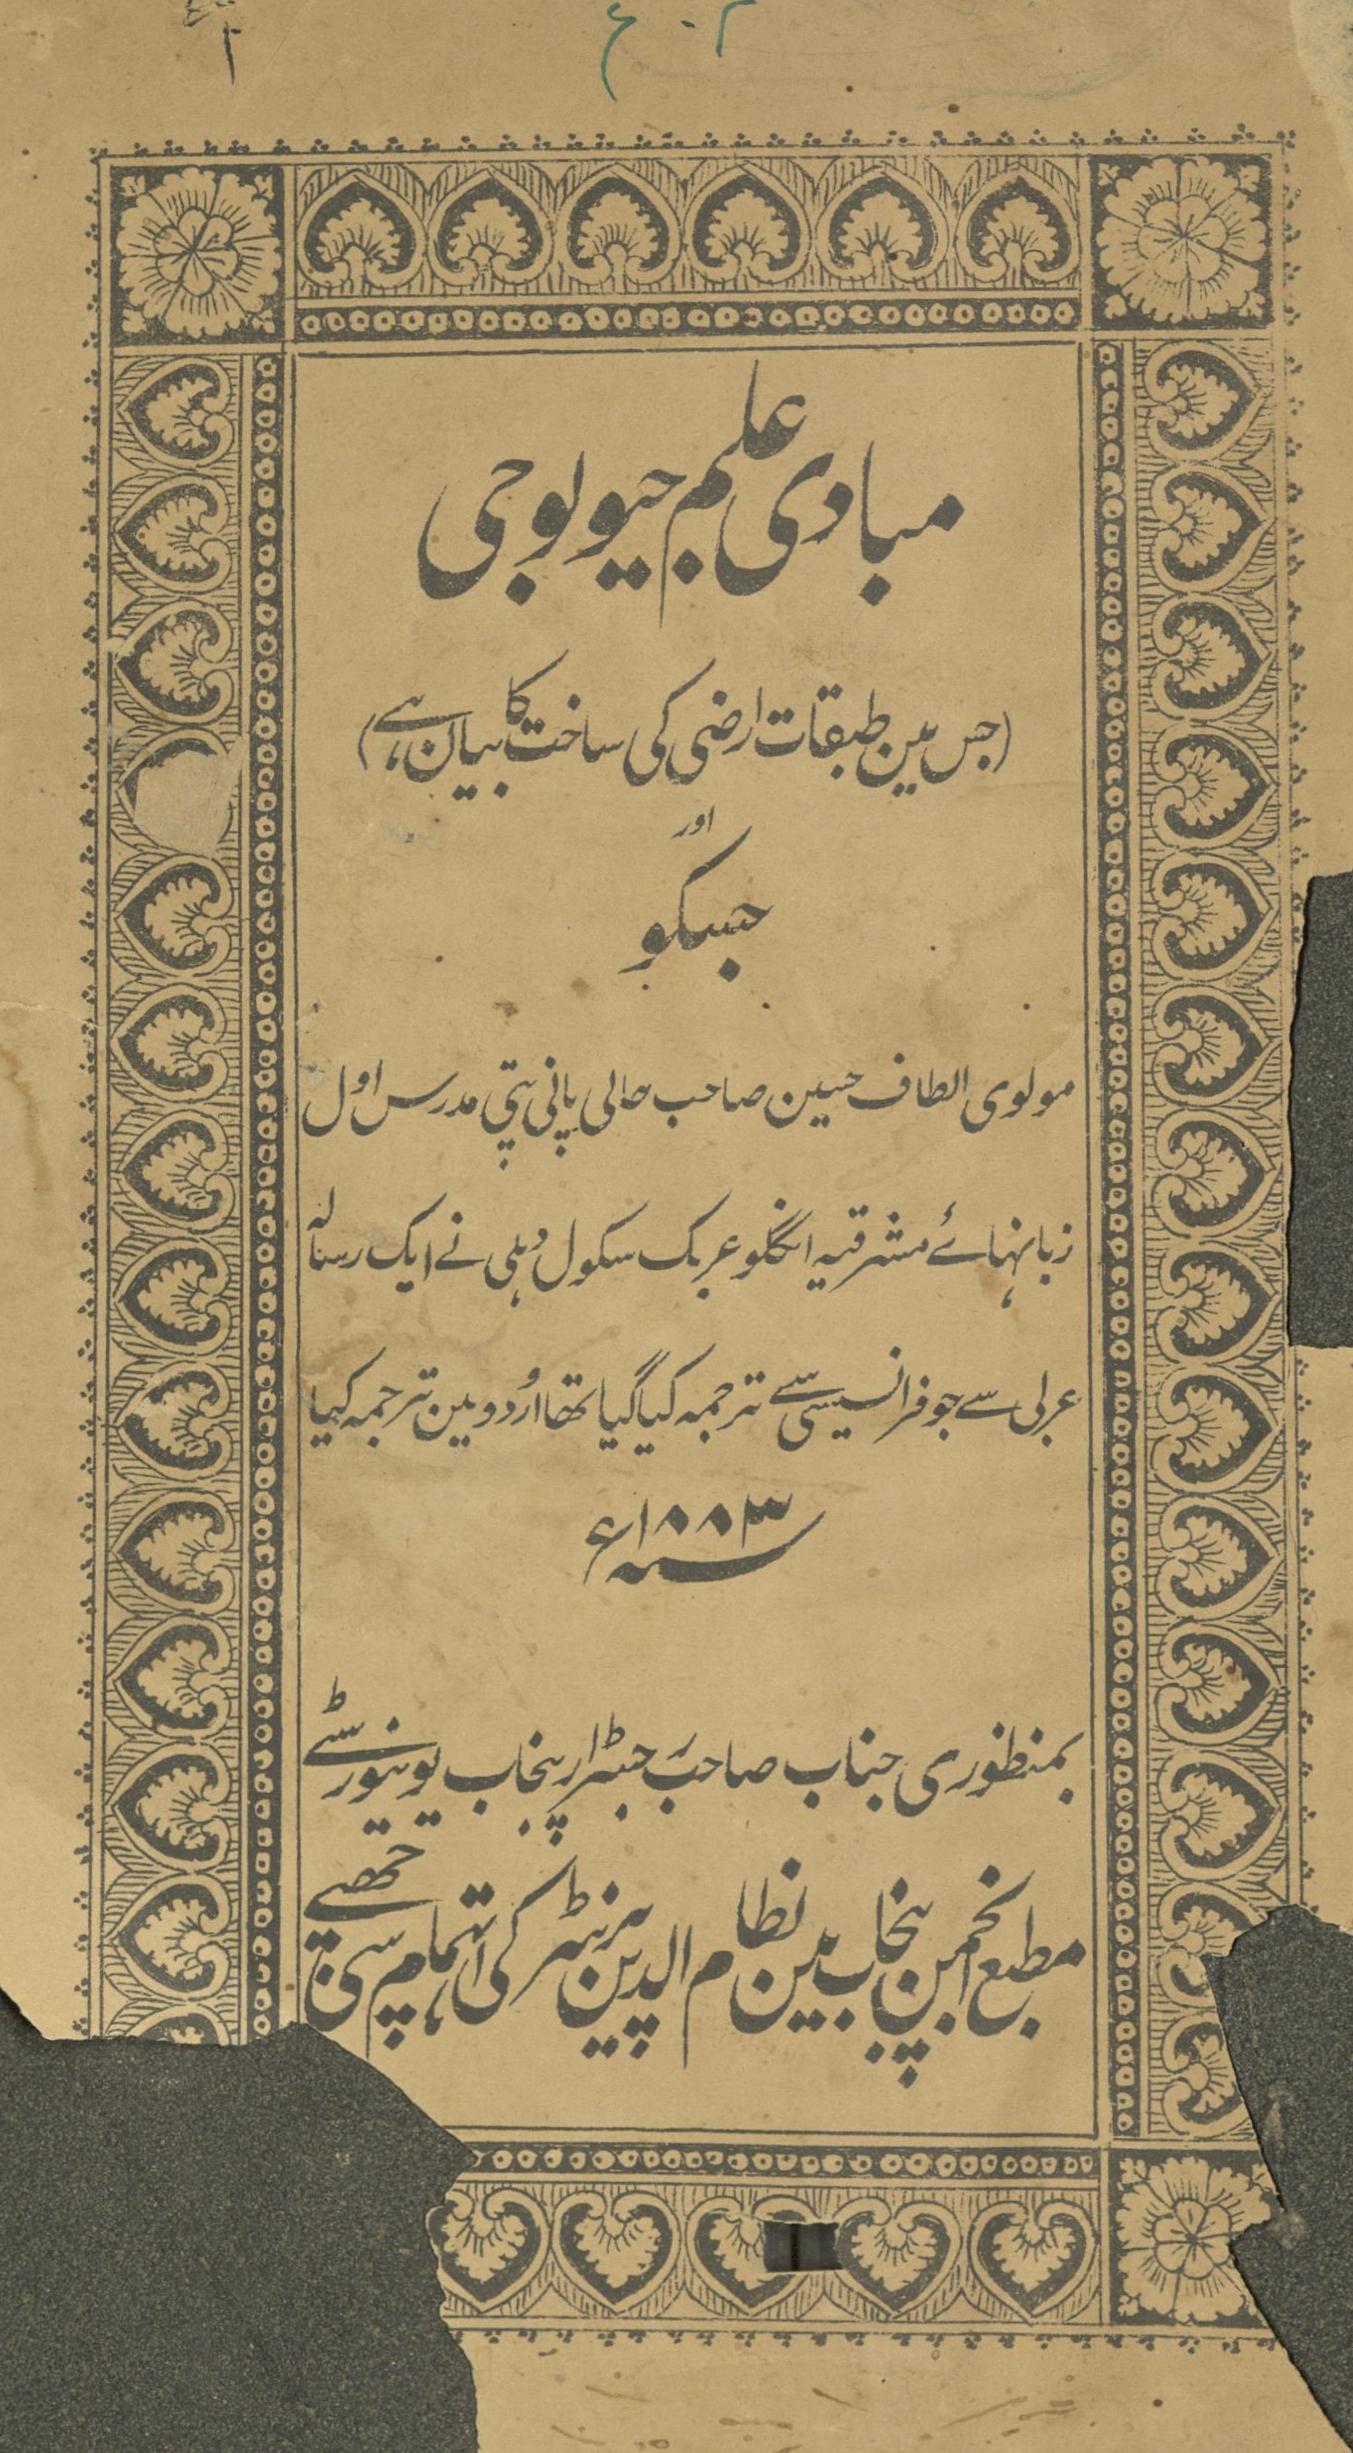 مبادی علم جیولوجی
(جس مین طبقات ارضی کی ساخت کا بیان ہے)
اور
جسکو
مولوی الطاف حسین صاحب حالی پانی پتی مدرس اول
زبانہائے مشرقیہ انگلو عربک سکول دہلی نے ایک رسالہ
عربی سے جو فرانسیسی سے ترجمہ کیا گیا تھا اُردو مین ترجمہ کیا
سنہ ۱۸۸۳ء
بمنظوری جناب صاحب رجسٹرار پنجاب یونیورسٹے
مطبع انجمن پنجاب مین نظام الدین پرنٹر کی اہتمام سی چھپے